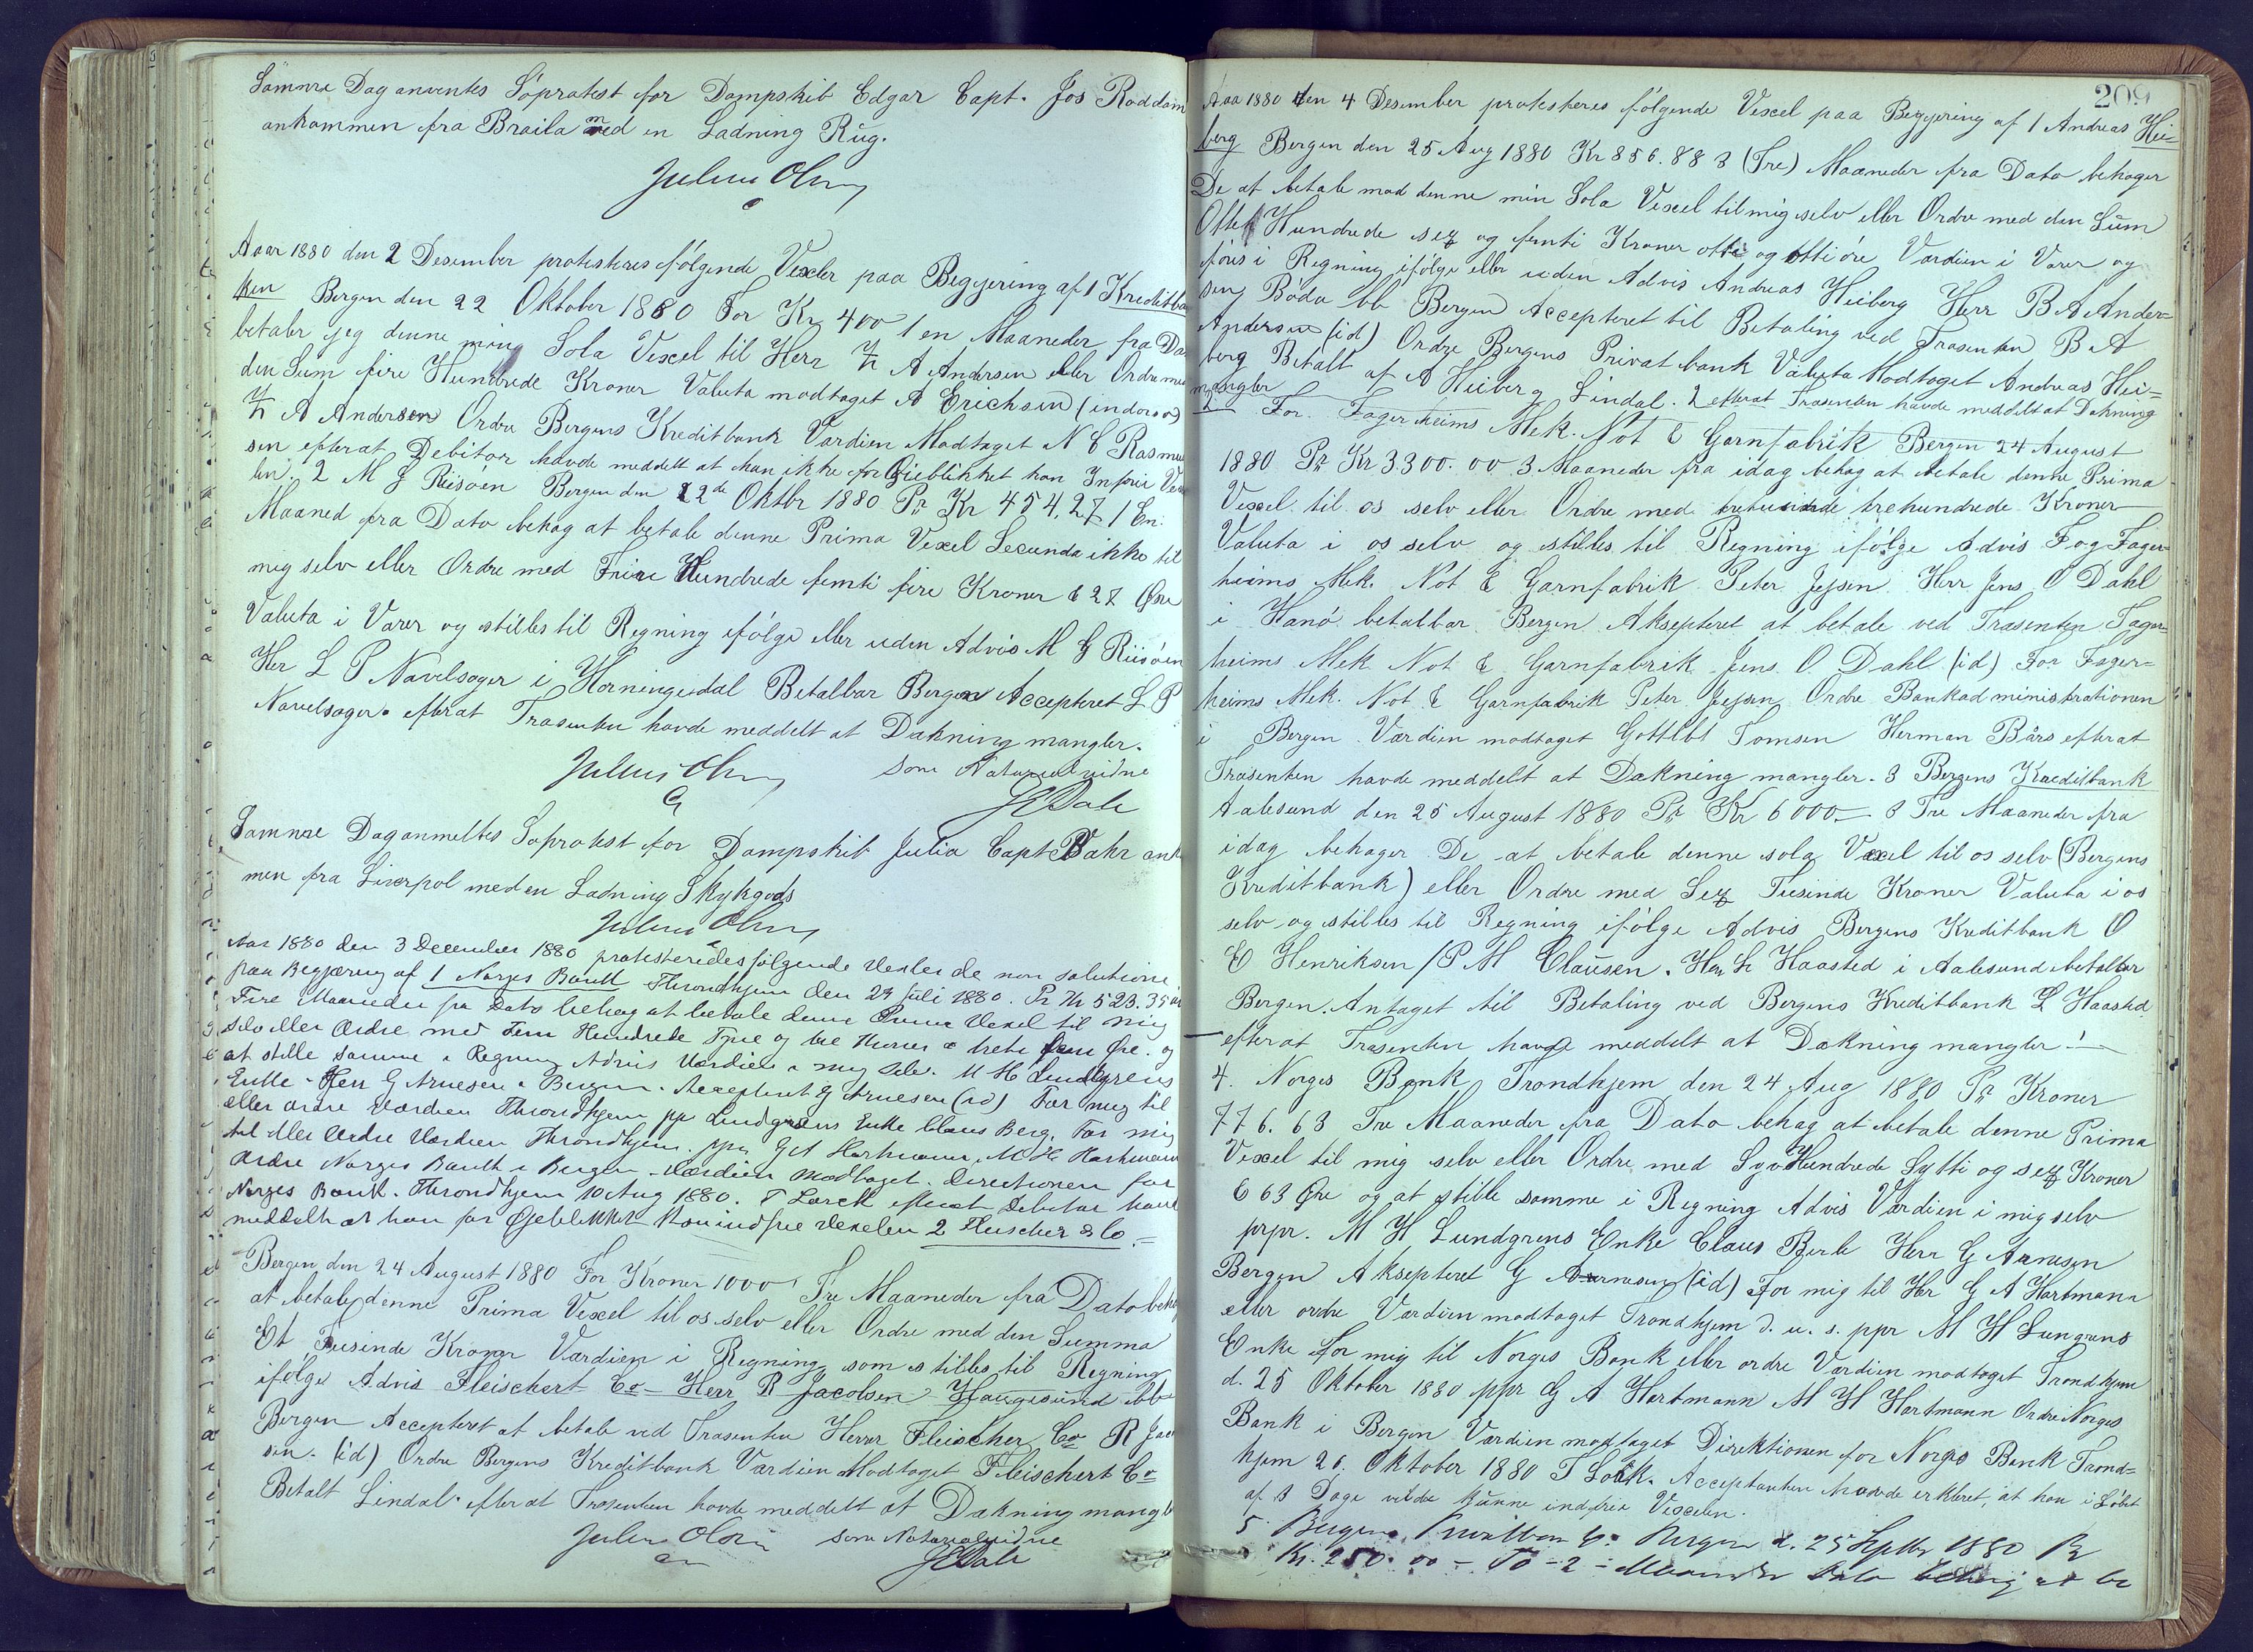 Samme Dag anmeldes Søprotest for Dampskib Edgar Capt. Jos Roddam
ankommen fra Braila med en Ladning Rug.
Julius Olsen
Aar 1880 den 2 Desember protesteres følgende Vexler paa Begjering af 1 Kreditban
ken Bergen den 22 Oktober 1880 For Kr 400 1 en Maaneder fra Da
betaler jeg denne min Sola Vexel til Herr A Andersen eller Ordre med
den Sum fire Hundrede Kroner Valuta modtaget A Erichsen (indorso)
A Andersen Ordre Bergens Kreditbank Værdien Modtaget N C Rasmus
sen efterat Debitor havde meddelt at han ikke for Øieblikket kan Infrie Vex
len. 2 M G Riisøen Bergen den 22de Oktbr 1880 Pr Kr 454,27 1 En
Maaned fra Dato behag at betale denne Prima Vexel Secunda ikke til
mig selv eller Ordre med Fire Hundrede femti fire Kroner & 27 Øre
Valuta i Varer og stilles til Regning ifølge eller uden Advis M G Riisøen
Her L P Navelsager i Horningsdal Betalbar Bergen Accepteret L P
Navelsager. efterat Trasenten havde meddelt at Dækning mangler.
Julius Olsen som Notarialvidne
J E Dale
Samme Dag anmeltes Søprotest for Dampskib Julia Capt Bahr ank
men fra Liverpol med en Ladning Stykgods
Julius Olsen
Aar 1880 den 3 December 1880 protesteredes følgende Vexler de non solutione
paa Begjæring af 1 Norges Bank Throndhjem den 29 Juli 1880. Pr Kr 523.35
Fire Maaneder fra Dato behag at betale denne Prima Vexel til mig
selv eller Ordre med Fem Hundrede Tyve og tre Kroner & treti fem Øre og
at stille samme i Regning Advis Værdien i mig selv. M H Lundgrens
Enke - Herr G Arnesen i Bergen. Accepteret G Arnesen (id) For mig til
eller ordre Værdien Throndhjem pp Lundgrens Enke Claus Berg. For mig
til eller Ordre Værdien Throndhjem ppa G A Hartmann M H Hartmann
Ordre Norges Bank i Bergen. Værdien modtaget. Directionen for
Norges Bank. Throndhjem 10 Aug 1880. T Lorck efterat Debitor havde
meddelt at han for Øieblikket kan indfrie Vexelen 2 Fleischer & Co.
Bergen den 24 August 1880 For Kroner 1000 Tre Maaneder fra Dato behag
at betale denne Prima Vexel til os selv eller Ordre med den Summa
Et Tusinde Kroner Værdien i Regning som stilles til Regning
ifølge Advis Fleischert Co - Herr R Jacobsen Haugesund
Bergen Accepteret at betale ved Trasenten Herrer Fleischer Co R Jac
sen. (id) Ordre Bergens Kreditbank Værdien Modtaget Fleischert Co
Betalt Lindal. efterat Trasenten havde meddelt at Dækning mangl
Julius Olsen som Notarialvidne
J E Dale
209
Aaa 1880 den 4 Desember protesteres følgende Vexel paa Begjering af 1 Andreas Hei=
berg Bergen den 25 Aug 1880 Kr 856.88 3 (Tre) Maaneder fra Dato behager
De at betale mod denne min Sola Vexel til mig selv eller Ordre med den Sum
Otte Hundrede sex og femti Kroner otte og otti øre Værdien i Varer og
føres i Regning ifølge eller uden Advis Andreas Heiberg Herr B A Ander=
sen Bodø bb Bergen Accepteret til Betaling ved Trasenten B A
Andersen (id) Ordre Bergens Privatbank Valuta Modtaget Andreas Hei=
berg Betalt af A Heiberg Lindal. efterat Trasenten havde meddelt at Dækning
mangler
2 For Fagerheims Mek. Not & Garnfabrik Bergen 24 August
1880 Pr Kr 3300.00 3 Maaneder fra idag behag at betale denne Prima
Vexel til os selv eller Ordre med tretusinde trehundrede Kroner
Valuta i os selv og stilles til Regning ifølge Advis For Fager=
heims Mek. Not & Garnfabrik Peter Jepsen Herr Jens O Dahl
i Hanø betalbar Bergen Aksepteret at betale ved Trasenten Fager=
heims Mek Not & Garnfabrik Jens O. Dahl (id) For Fager=
heims Mek. Not & Garnfabrik Peter Jepsen Ordre Bankadministrationen
i Bergen Værdien modtaget Gottlbt Tomsen Herman Bårs efterat
Trasenten havde meddelt at Dækning mangler. 3 Bergens Kreditbank
Aalesund den 25 August 1880 Pr Kr 6000 3 Tre Maaneder fra
idag behager De at betale denne sola Vexel til os selv (Bergens
Kreditbank) eller Ordre med Sex Tusinde Kroner Valuta i os
selv og stilles til Regning ifølge Advis Bergens Kreditbank O
E Henriksen / P M Clausen. Her L Haasted i Aalesund betalbar
Bergen. Antaget til Betaling ved Bergens Kreditbank L Haasted
efterat Trasenten havde meddelt at Dækning mangler!
4. Norges Bank Trondhjem den 24 Aug 1880 Pr Kroner
776.63 Tre Maaneder fra Dato behag at betale denne Prima
Vexel til mig selv eller Ordre med Syv Hundrede Sytti og sex Kroner
& 63 Øre og at stille samme i Regning Advis Værdien i mig selv
prpr. M H Lundgrens Enke Claus Berle Herr G Arnesen
Bergen Aksepteret G Arnesen (id) For mig til Her G A Hartmann
eller ordre Værdien modtaget Trondhjem d. u. s. ppr M H Lungrens
Enke For mig til Norges Bank eller ordre Værdien modtaget Trondhjem
d. 25 Oktober 1880 ppr G A Hartmann M H Hartmann Ordre Norges
Bank i Bergen Værdien modtaget Direktionen for Norges Bank Trond=
hjem 26. Oktober 1880 T Lock. Acceptanten havde erkleret, at han i Løbet
af 3 Dage vilde kunne indfrie Vexelen.
5. Bergens Bergen d. 25 Septbr 1880 Pr
Kr. 250.00 - To - 2 - Maaneder Dato behag at be